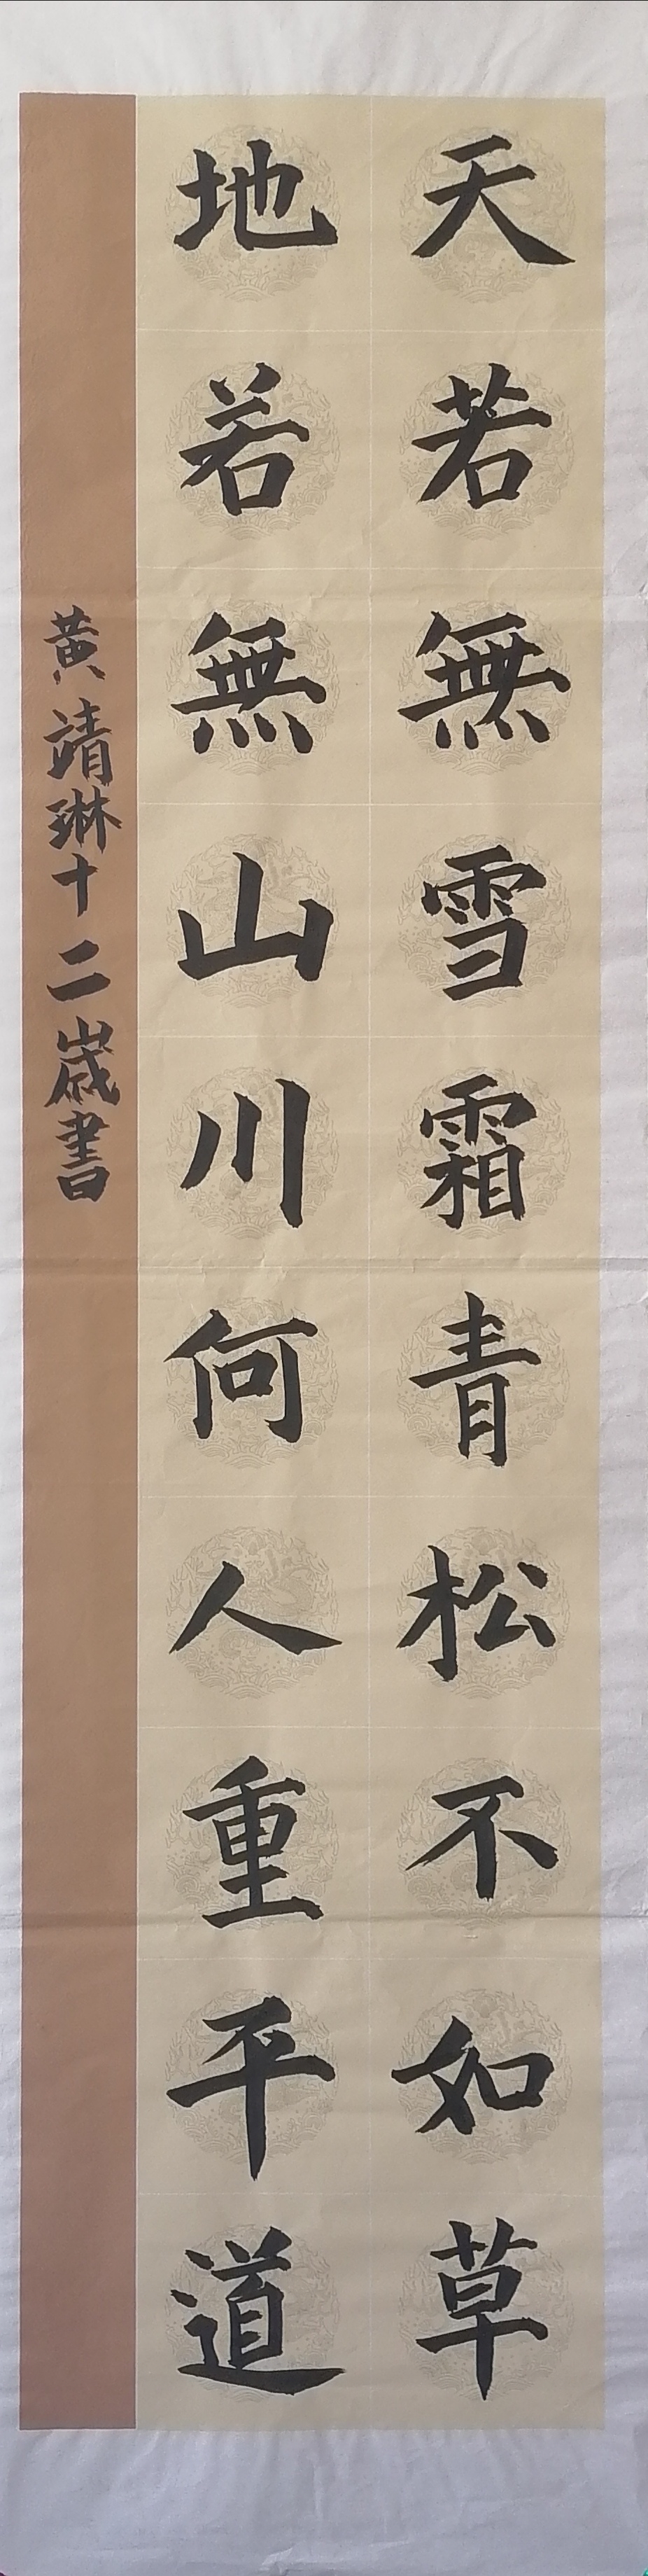 天若無雪霜青松不如草
地若無山川何人重平道
黄靖琳十二歲書